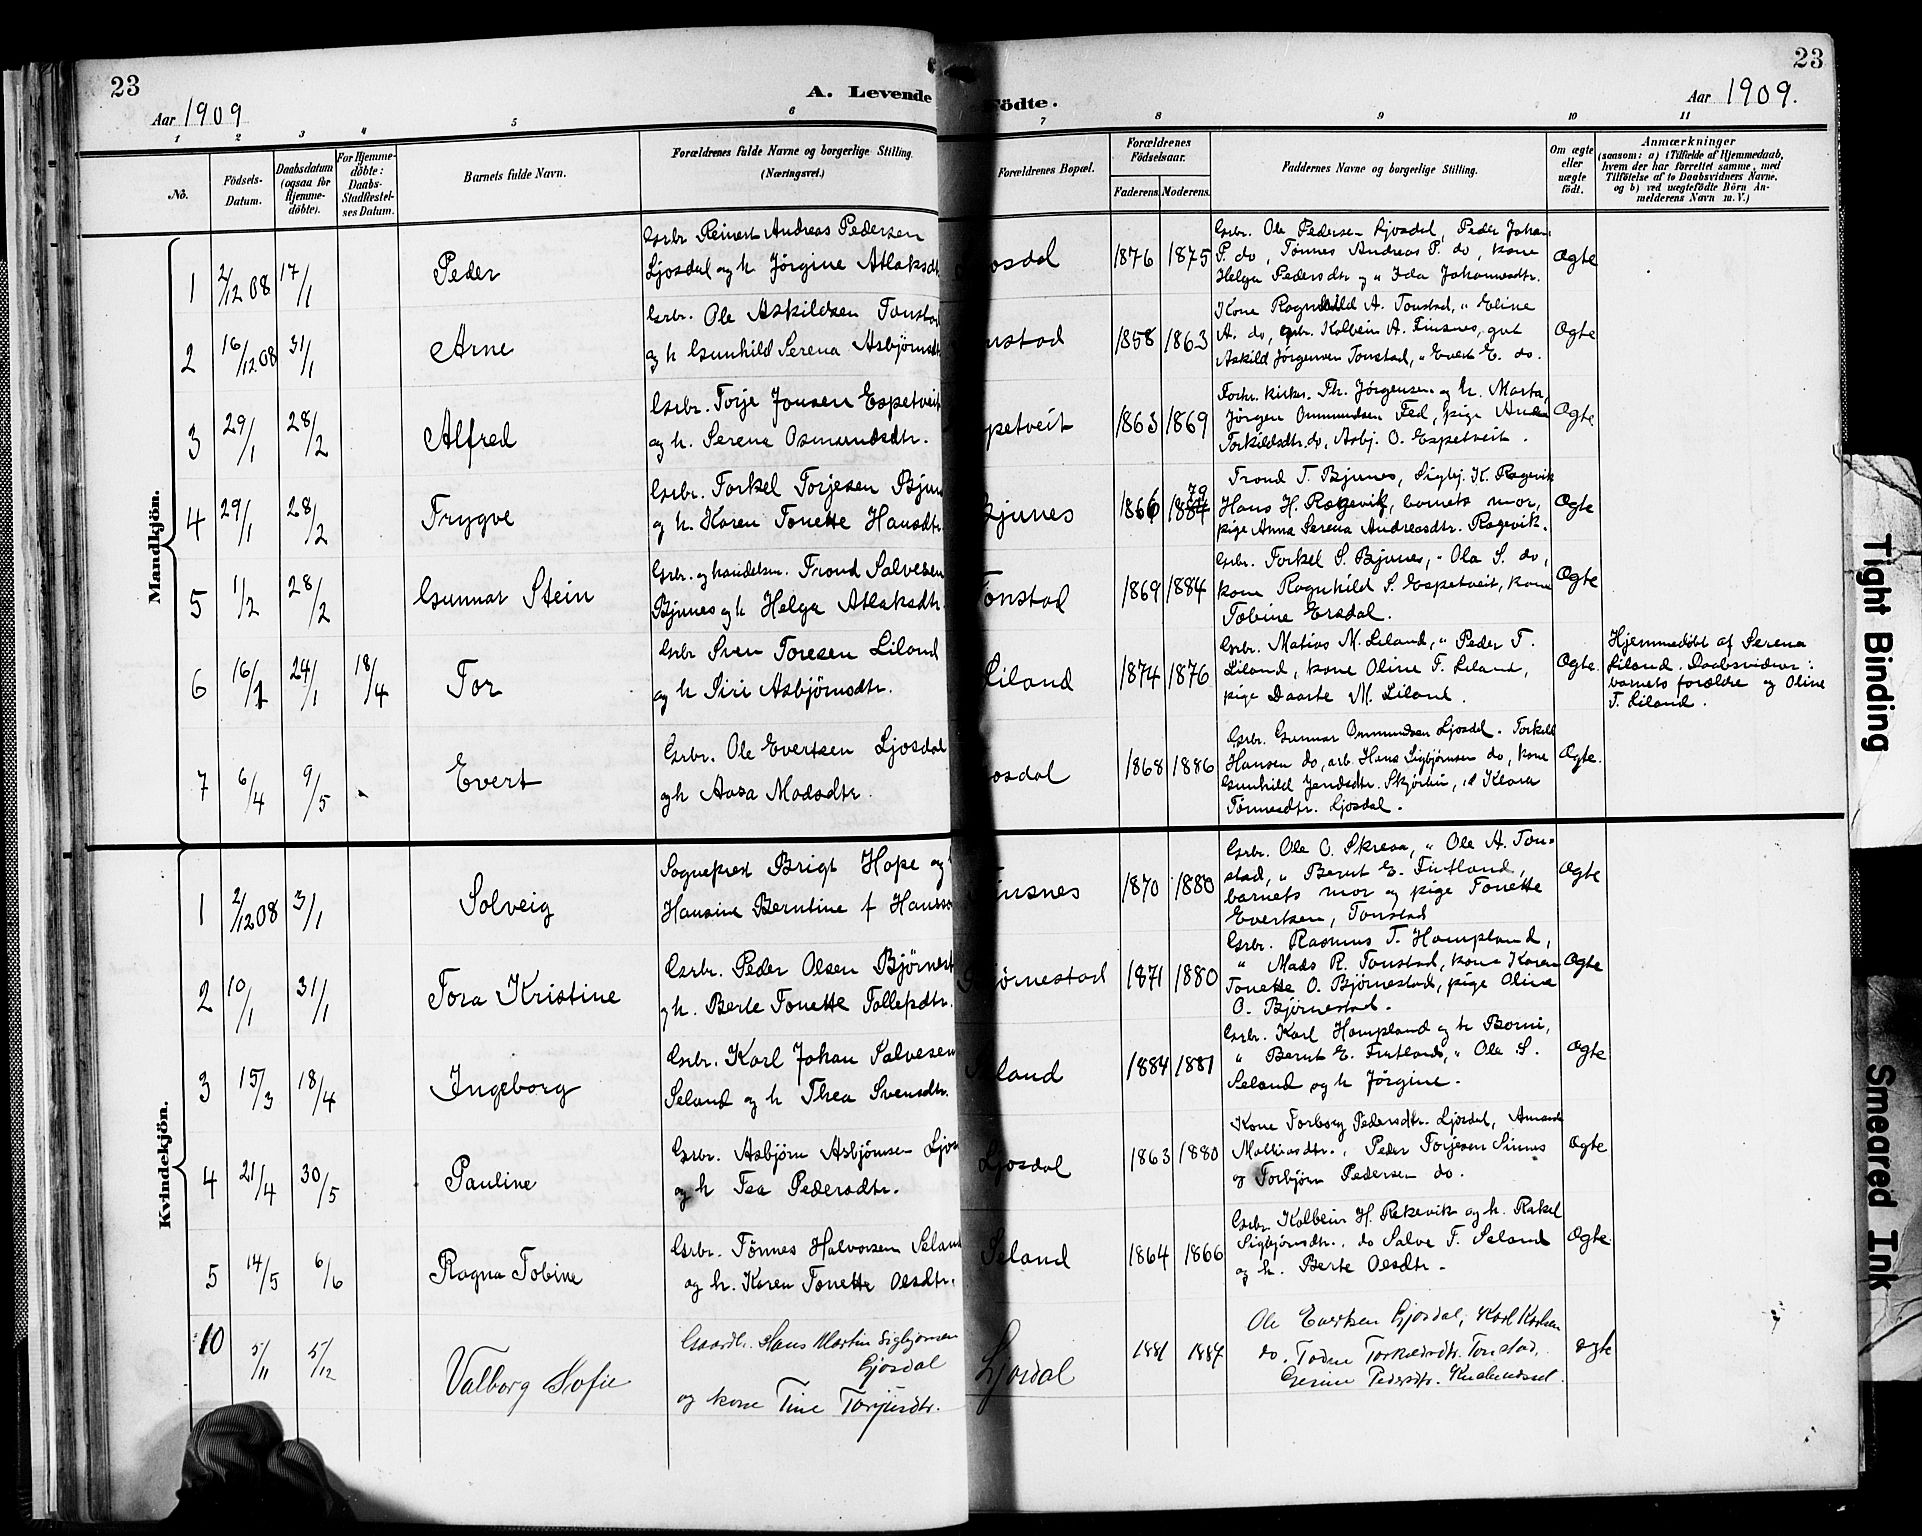 23
23
Aar 1909
A. Levende Födte.
Aar 1909.
1 2 3 4 5 6 7 8 9 10 11
No.
Födsels-Datum.
Daabsdatum (ogsaa for Hjemme-döbte).
For Hjemme-döbte: Daabs-Stadfestel-ses Datum.
Barnets fulde Navn.
Forældrenes fulde Navne og borgerlige Stilling. (Næringsvei.)
Forældrenes Bopæl.
Forældrenes Födselsaar.
Faderens. Moderens.
Faddernes Navne og borgerlige Stilling.
Om ægte eller uægte födt.
Anmærkninger
(saasom: a) i Tilfælde af Hjemmedaab, hvem der har forrettet samme, med Tilföielse af to Daabsvidners Navne, og b) ved uægtefödte Börn An-melderens Navn m. V.)
Mandkjön.
1 2/12 08 17/1 Peder
Grbr Reinert Andreas Pedersen
Ljosdal og h Jørgine Atlaksdt
osdal 1876 1875
Grbr. Ole Pedersen Ljosdal, Peder Johan
P. do, Tønnes Andreas P. do, kone
Helga Pedersdtr og " Ida Johannesdtr.
Ægte
2 16/12 08 31/1 Arne
Grbr. Ole Askildsen Tonstad
og h Gunhild Serena Asbjørnsdt
nstad 1858 1863
Kone Ragnhild A. Tonstad, " Eline
A. do, grbr. Kolbein A. Finsnes, gut
Askild Jørgensen Tonstad, " Evert E. do.
Ægte
3 29/1 28/2 Alfred
Grbr. Torje Jonsen Espetveit
og h. Serena Osmundsdtr.
petveit 1863 1869
Forhr. kirkes. Th. Jørgensen og h. Marta,
Jørgen Ommundsen Fed, pige
Torkildsdtr. do, Asbj. O. Espetveit.
Ægte
4 29/1 28/2 Trygve
Grbr. Torkel Torjesen Bjun
og h. Karen Tonette Hansdtr
Bjunes 1866 79
Trond T. Bjunes, Sigbj. K. Rogevik
Hans H. Rogevik, barnets mor,
pige Anna Serena Andreasdtr. Rogevik.
Ægte
5 1/2 28/2 Gunnar Stein
Grbr. og handelsm. Trond Salvesen
Bjunes og h Helga Atlaksdtr.
Tonstad 1869 1884
Grbr. Torkel S. Bjunes, " Ola S. do,
kone Ragnhild S. Espetveit, kone
Tobine Ersdal.
Ægte
6 16/1 24/1 18/4 Tor
Grbr Sven Toresen Liland
og h Siri Asbjørnsdtr.
Liland 1874 1876
Grbr. Matias M. Liland, " Peder T.
Liland, kone Oline T. Liland,
pige Daarte M. Liland.
Ægte
Hjemmedøbt af Serena
Liland. Daabsvidner:
barnets forældre og Oline
T. Liland.
7 6/4 9/5 Evert
Grbr. Ole Evertsen Ljosdal
og h Aasa Madsdtr.
osdal 1868 1886
Grbr. Gunnar Ommundsen Ljosdal. Torkild
Hansen do, arb. Hans Sigbjørnsen do, kone
Gunhild
Tønnesdtr. Ljosdal.
Ægte.
Kvindekjön.
1 2/12 08 3/1 Solveig
Sogneprest Brigt Hope og
Hansine Berntine f
insnes 1870 1880
Grbr. Ole O. Skreaa, " Ole A. Ton-
stad, " Bernt E. Fintland,
barnets mor og pige Tonette
Evertsen, Tonstad
Ægte
2 10/1 31/1 Tora Kristine
Grbr. Peder Olsen Bjørnest
og h. Berte Tonette Tollefsdtr.
jørnestad 1871 1880
Grbr. Rasmus T. Hompland,
" Mads R. Tonstad, kone Karen
Tonette O. Bjørnestad, pige Oline
O. Bjørnestad.
Ægte
3 15/3 18/4 Ingeborg
Grbr. Karl Johan Salvesen
Seland og h Thea Svensdtr.
eland 1884 1881
Grbr. Karl Hompland og h Borni,
" Bernt E. Fintland, " Ole S.
Seland og h Jørgine.
Ægte
4 21/4 30/5 Pauline
Grbr. Asbjørn Asbjørnsen Ljos
og h Tea Pedersdtr.
Ljosdal 1863 1880
Kone Torborg Pedersdtr. Ljosdal,
Peder Torjesen Sinnes
og Torbjørn Pedersen do.
Ægte
5 14/5 6/6 Ragna Tobine
Grbr. Tønnes Halvorsen Selan
og h. Karen Tonette Olsdtr.
Seland 1864 1866
Grbr. Kolbein H. Rekevik og h. Rakel
Sigbjørnsdtr., do Salve T. Seland
og h. Berte Olsdtr.
Ægte.
10 5/11 5/12 Valborg Sofie
Gaardbr. Hans Martin Sigbjørnsen
Ljosdal
og kone Tine Torjusdtr.
Ljosdal 1881 1887
Ole Evertsen Ljosdal, Karl Karlsen
do. Tonstad,
Pedersdtr.
ægte
Tight Binding
Smeared Ink